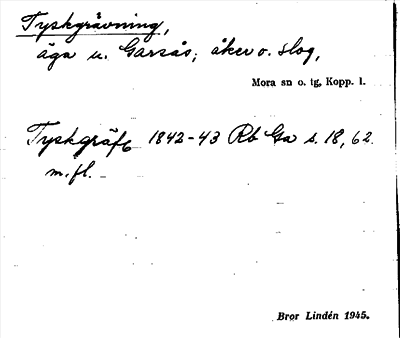 Tyskgrävning,
äga u. Garsås; åker o. slog,
Mora sn o. tg, Kopp. l.
Tyskgräfv 1842-43 Rb Ga s. 18, 62.
m. fl.
Bror Lindén 1945.